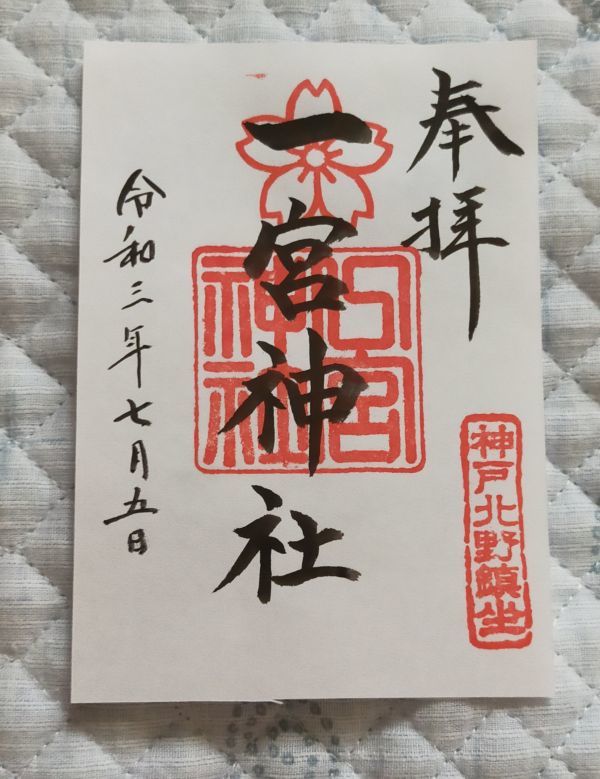 奉拝
神戸北野鎮坐
一宮神社
一宮神社
令和三年七月五日